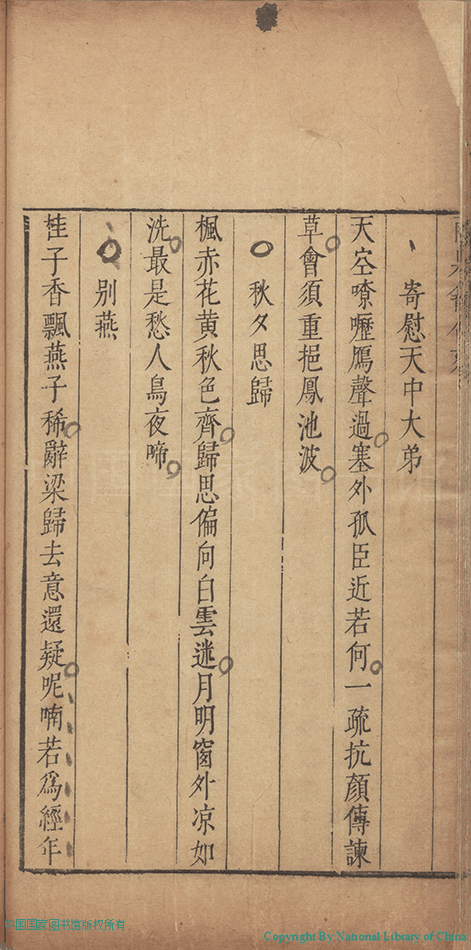 寄慰天中大弟
天空嘹嚦鴈聲過塞外孤臣近若何一疏抗顏傳諫
草會須重挹鳳池波
秋夕思歸
楓赤花黃秋色齊歸思偏向白雲迷月明窗外凉如
洗最是愁人鳥夜啼
别燕
桂子香飄燕子稀辭梁歸去意還疑呢喃若爲經年
中国国家图书馆版权所有
Copyright By National Library of China